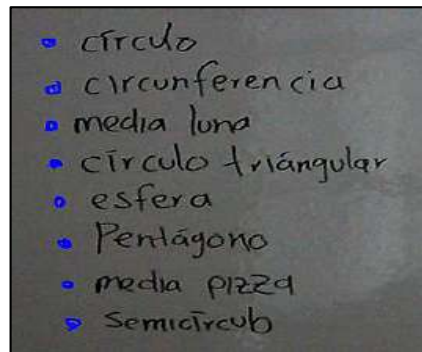 círculo
circunferencia
media luna
círculo triángular
esfera
Pentágono
media pizza
Semicírculo